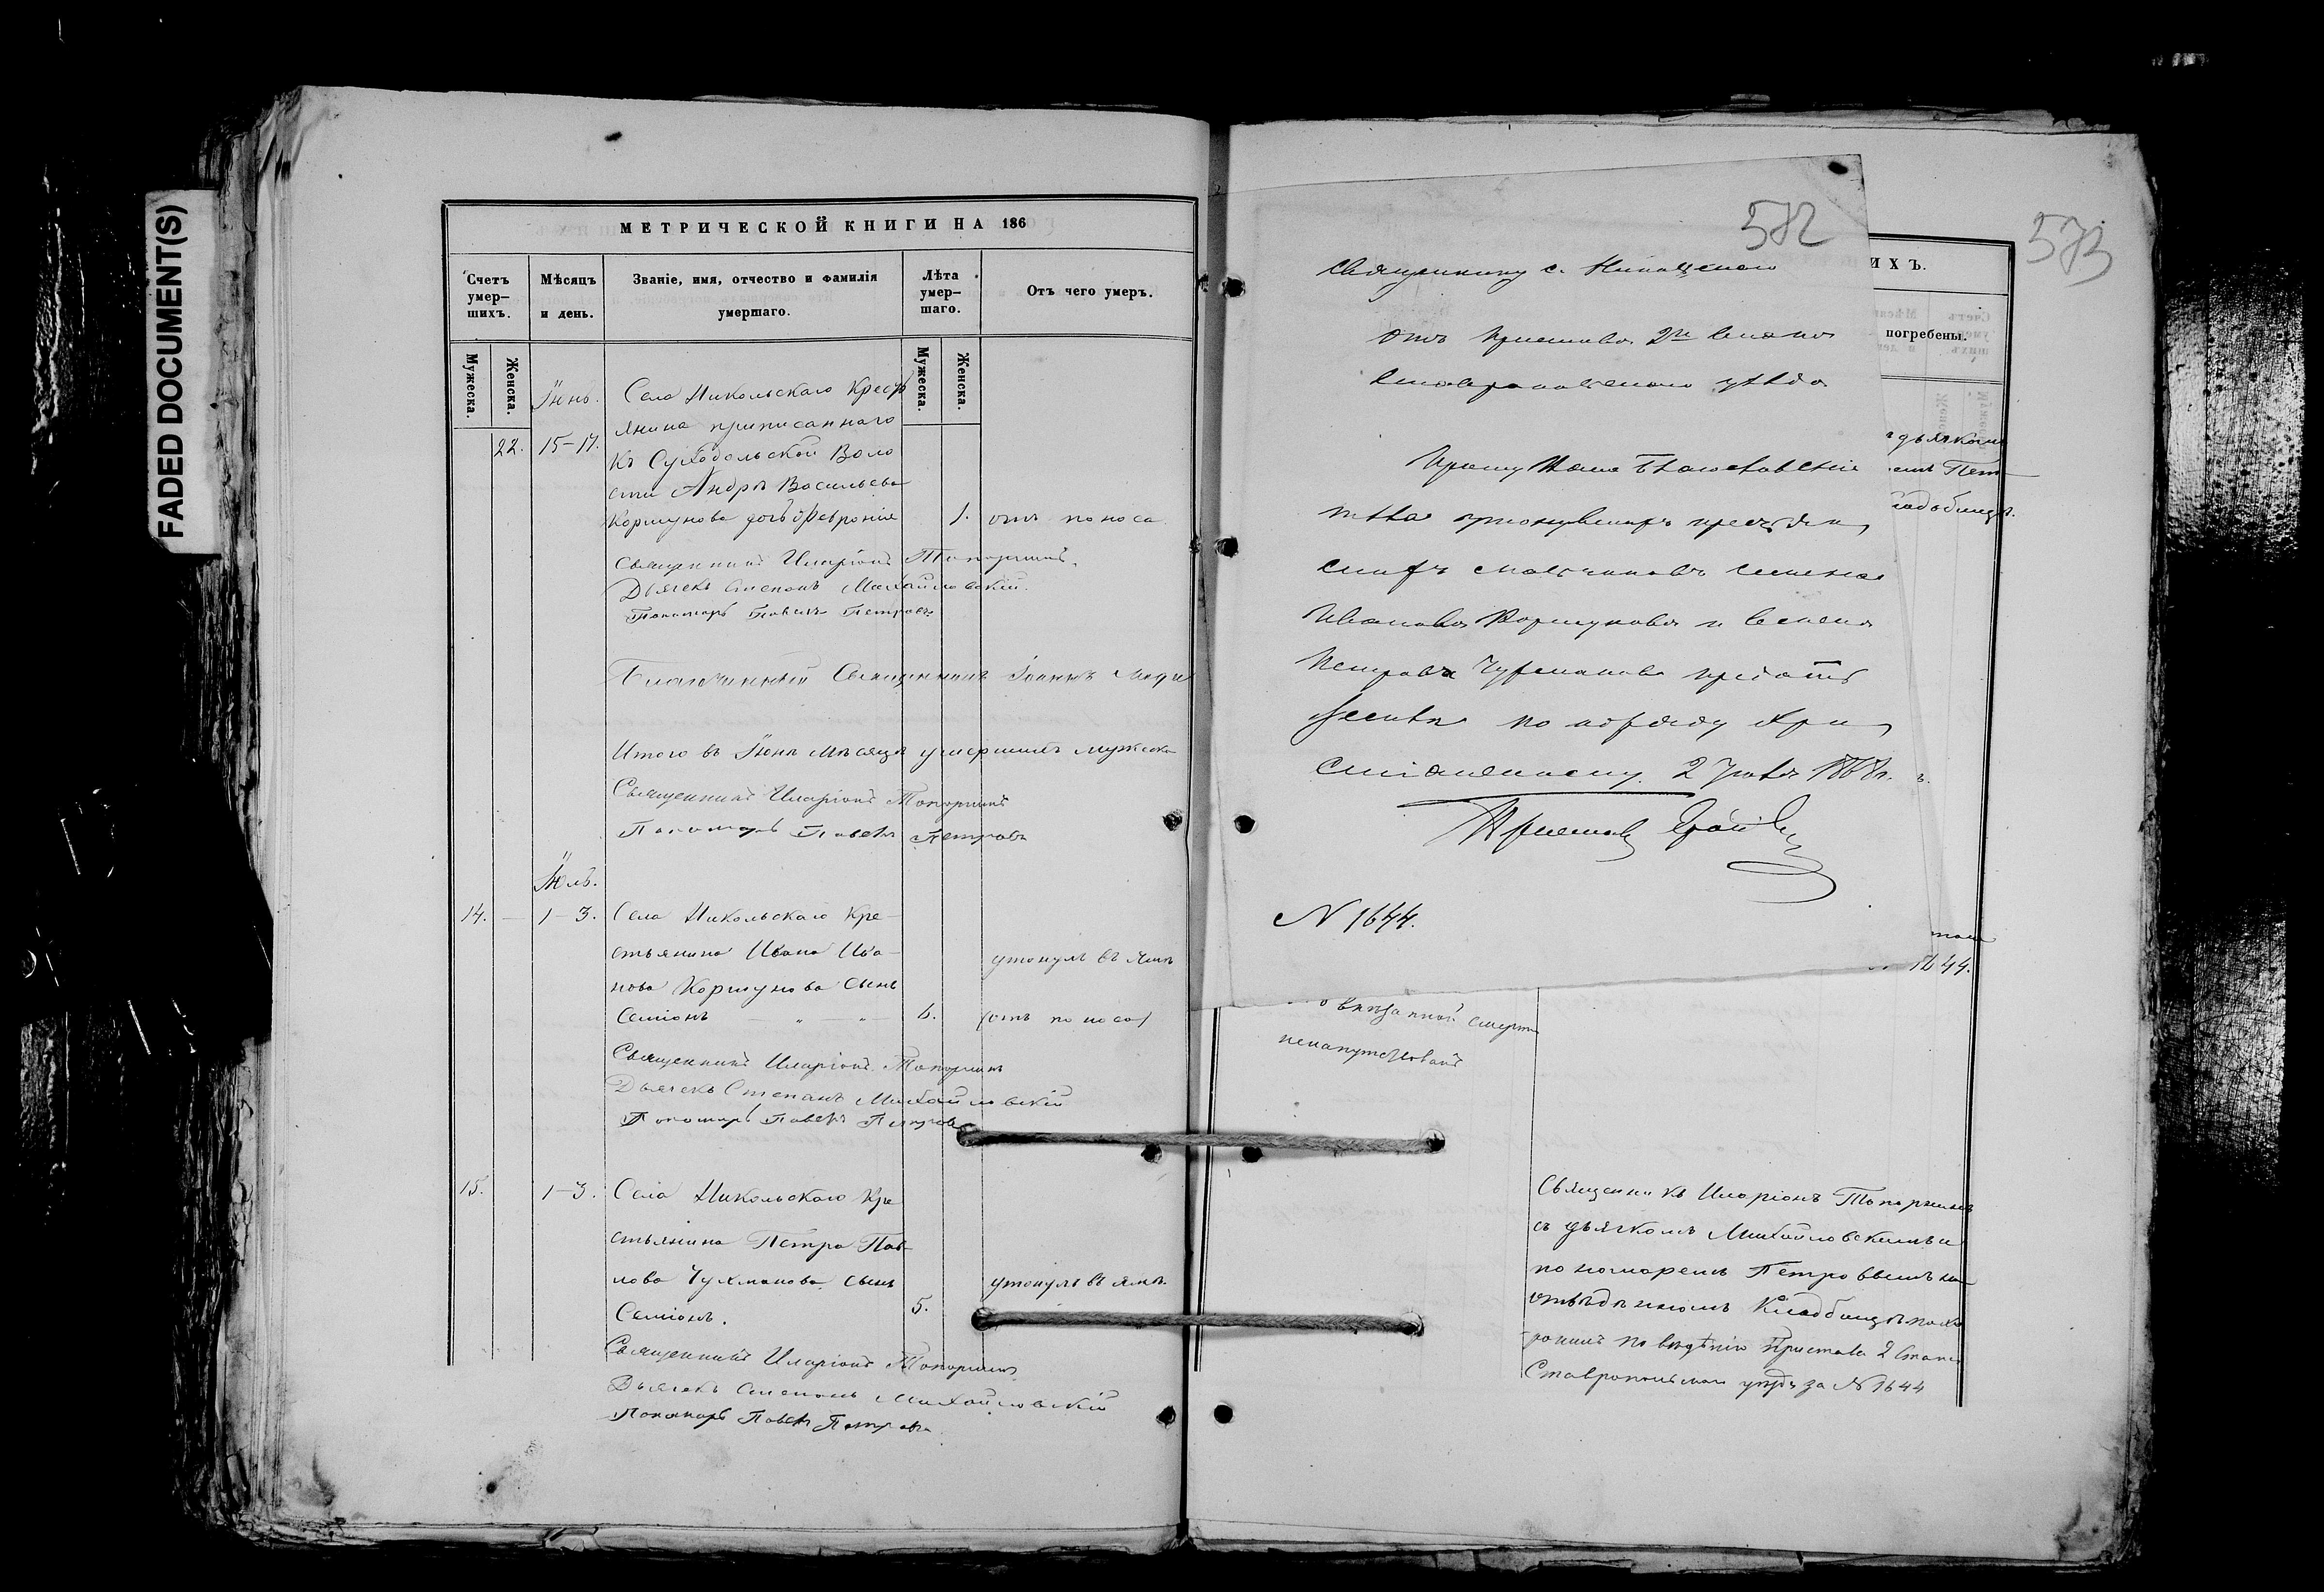 FADED DOCUMENT(S)
МЕТРИЧЕСКОЙ КНИГИ НА 186
Счетъ умер-шихъ.
Мѣсяцъ и день.
Званіе, имя, отчество и фамилія умершаго.
Лѣта умер-шаго.
Отъ чего умеръ.
Мужеска.
Женска.
Мужеска.
Женска.
Іюнь.
22.
15-17.
Села Никольскаго Крестъ
янина приписаннаго
къ Суходольской Воло
сти Андрѣ Васильева
Коршунова дочь Февронія
1.
отъ поноса
Священникъ Иларіонъ Топорнинъ.
Дьячекъ Степанъ Михайловскій.
Пономарь Павелъ Петровъ
Благочинный Священникъ Іоаннъ
Итого въ Іюнѣ мѣсяцѣ умершихъ мужеска
Священникъ Иларіонъ Топорнинъ
Пономарь Павелъ Петровъ
Іюль.
14.
1-3.
Села Никольскаго Кре-
стьянина Ивана Ива-
нова Коршунова сынъ
Семіонъ
6.
утонулъ въ ямѣ
(отъ поноса)
Священникъ Иларіонъ Топорнинъ
Дьячекъ Степанъ Михайловскій
Пономарь Павелъ Петровъ
15.
1-3.
Села Никольскаго Кре
стьянина Петра Пав-
лова Чухманова сынъ
Семіонъ.
5.
утонулъ въ ямѣ.
Священникъ Иларіонъ Топорнинъ
Дьячекъ Степанъ Михайловскій
Пономарь Павелъ Петровъ
582
Священнику с. Никольскаго
Отъ Пристава 2го Стана
Ставропольскаго уѣзда
Прошу Ваше Благословеніе
тѣла утонувшихъ крестьян
скихъ мальчиковъ Семена
Иванова Коршунова и Семена
Петрова Чухманова предать
землѣ по обряду Хри
стіанскому. 2 Іюля 1868 г.
Приставъ
N 1644.
573
ИХЪ.
погребены.
дьячкомъ
емъ Пет
кладбищѣ.
1644.
внезапной смерти
ненапутствованъ
Священникъ Иларіонъ Топорнинъ
съ дьячкомъ Михайловскимъ и
пономаремъ Петровымъ на
отвѣденномъ Кладбищѣ похо
ронилъ по вѣдѣнію Пристава 2 Стана
Ставропольскаго уѣзда за N 1644